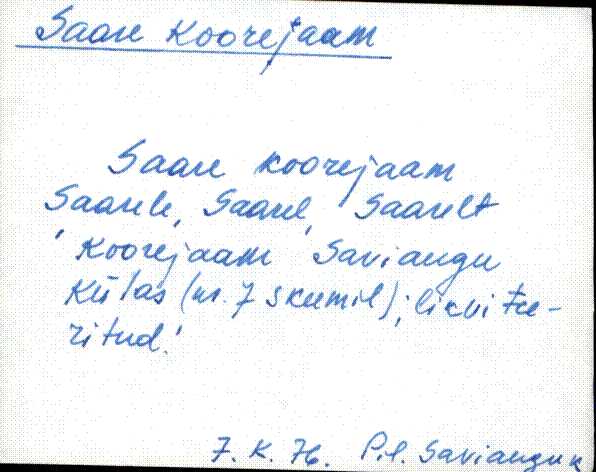 Saare koorejaam
Saare koorejaam
Saarele, Saarel, Saarelt
'Koorejaam Saviangu
külas (nr. 7 skeemil); likvitee-
ritud.'
7. K. 76. P.l. Saviangu k